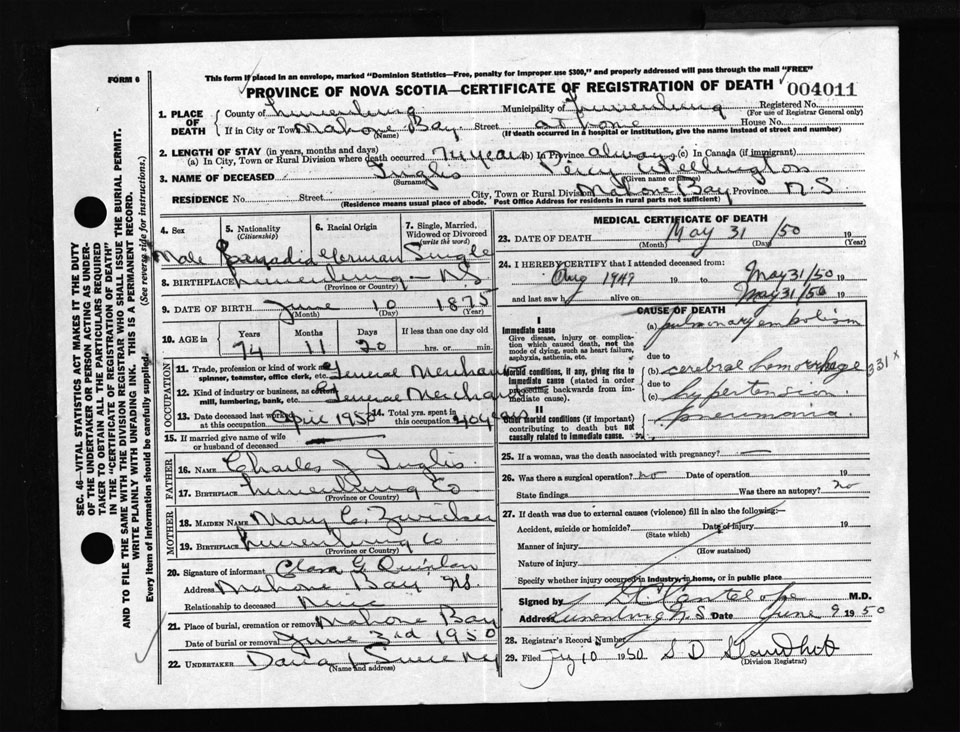 FORM 6
This form if placed in an envelope, marked "Dominion Statistics—Free, penalty for improper use $300," and properly addressed will pass through the mail "FREE"
PROVINCE OF NOVA SCOTIA—CERTIFICATE OF REGISTRATION OF DEATH 004011
1. PLACE OF DEATH County of Lunenburg Municipality of Lunenburg Registered No. (For use of Registrar General only)
If in City or Town Mahone Bay (Name) Street at home House No.
(If death occurred in a hospital or institution, give the name instead of street and number)
2. LENGTH OF STAY (in years, months and days)
(a) In City, Town or Rural Division where death occurred 74 years (b) In Province always (c) In Canada (if immigrant)
3. NAME OF DECEASED Inglis (Surname) Percy Wellington (Given name or names)
RESIDENCE No. Street City, Town or Rural Division Mahone Bay Province N.S
(Residence means usual place of abode. Post Office Address for residents in rural parts not sufficient)
4. Sex 5. Nationality (Citizenship) 6. Racial Origin 7. Single, Married, Widowed or Divorced (write the word)
Male Canadia German Single
8. BIRTHPLACE Lunenburg N.S (Province or Country)
9. DATE OF BIRTH June (Month) 10 (Day) 1875 (Year)
10. AGE in Years Months Days If less than one day old
74 11 20 hrs. or min.
OCCUPATION
11. Trade, profession or kind of work as spinner, teamster, office clerk, etc. General Merchant
12. Kind of industry or business, as cotton mill, lumbering, bank, etc. General Merchant
13. Date deceased last worked at this occupation April 1950 14. Total yrs. spent in this occupation 40 years
15. If married give name of wife or husband of deceased
FATHER
16. NAME Charles J Inglis
17. BIRTHPLACE Lunenburg Co (Province or Country)
MOTHER
18. MAIDEN NAME Mary C. Zwicker
19. BIRTHPLACE Lunenburg Co (Province or Country)
20. Signature of informant Clara G Quinlan
Address Mahone Bay NS.
Relationship to deceased Niece
21. Place of burial, cremation or removal Mahone Bay
Date of burial or removal June 3rd 1950
22. UNDERTAKER (Name and address)
MEDICAL CERTIFICATE OF DEATH
23. DATE OF DEATH May 31 /50 (Month) (Day) (Year)
24. I HEREBY CERTIFY that I attended deceased from:
Aug 1949 19 to May 31/50 19
and last saw h alive on May 31/50 19
CAUSE OF DEATH
I
Immediate cause
Give disease, injury or complication which caused death, not the mode of dying, such as heart failure, asphyxia, asthenia, etc.
(a) pulmonary embolism
due to
Morbid conditions, if any, giving rise to immediate cause (stated in order proceeding backwards from immediate cause).
(b) cerebral hemorrhage 331x
due to
(c) hypertension
II
Other morbid conditions (if important) contributing to death but not causally related to immediate cause.
pneumonia.
25. If a woman, was the death associated with pregnancy?
26. Was there a surgical operation? no Date of operation 19
State findings Was there an autopsy? no
27. If death was due to external causes (violence) fill in also the following:—
Accident, suicide or homicide? (State which) Date of injury 19
Manner of injury (How sustained)
Nature of injury
Specify whether injury occurred in industry, in home, or in public place
Signed by Cantelope M.D.
Address Lunenburg N.S Date June 9 1950
28. Registrar's Record Number
29. Filed 10 1950 S D (Division Registrar)
SEC. 46—VITAL STATISTICS ACT MAKES IT THE DUTY
OF THE UNDERTAKER OR PERSON ACTING AS UNDERTAKER
TO OBTAIN ALL THE PARTICULARS REQUIRED
IN THE "CERTIFICATE OF REGISTRATION OF DEATH"
AND TO FILE THE SAME WITH THE DIVISION REGISTRAR WHO SHALL ISSUE THE BURIAL PERMIT.
WRITE PLAINLY WITH UNFADING INK. THIS IS A PERMANENT RECORD.
Every item of information should be carefully supplied. (See reverse side for instructions.)